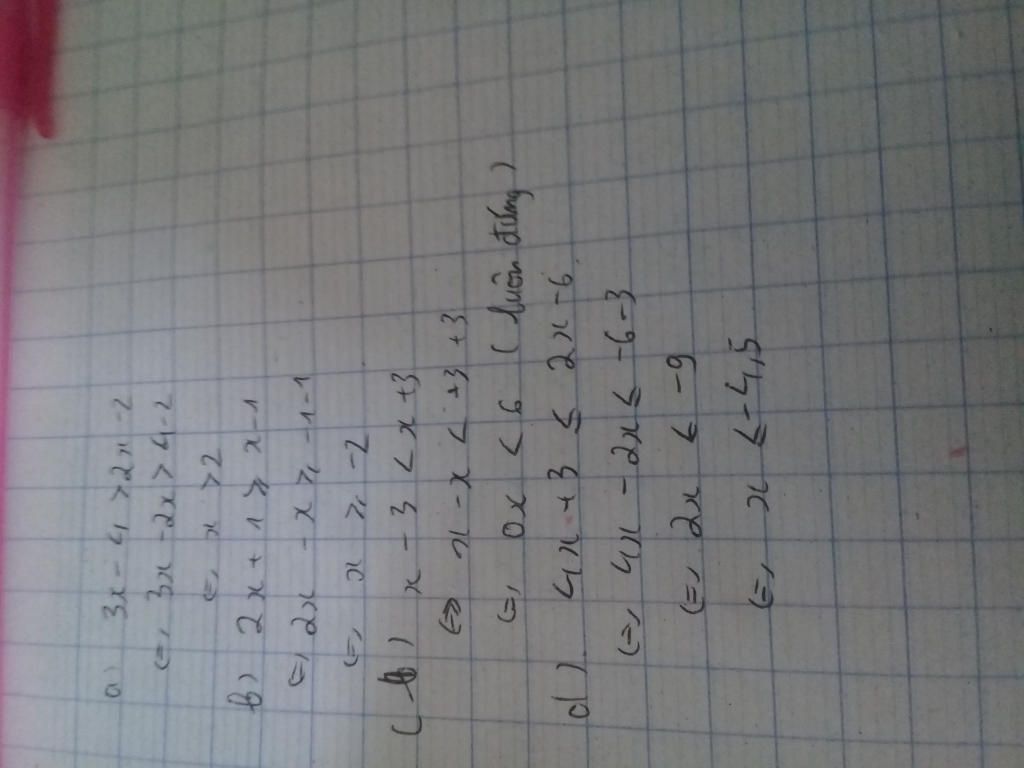 a) 3x - 4 > 2x - 2
(=, 3x - 2x > 4 - 2
(=, x > 2
b) 2x + 1 ⩾ x - 1
(=, 2x - x ⩾, -1 - 1
(=, x ⩾, -2
( b ) x - 3 < x + 3
(=> x - x < +3 + 3
(=, 0x < 6 ( luôn đúng )
d) 4x + 3 ≤ 2x - 6
(=, 4x - 2x ≤ -6 - 3
(=, 2x ≤ -9
(=, x ≤ -4,5